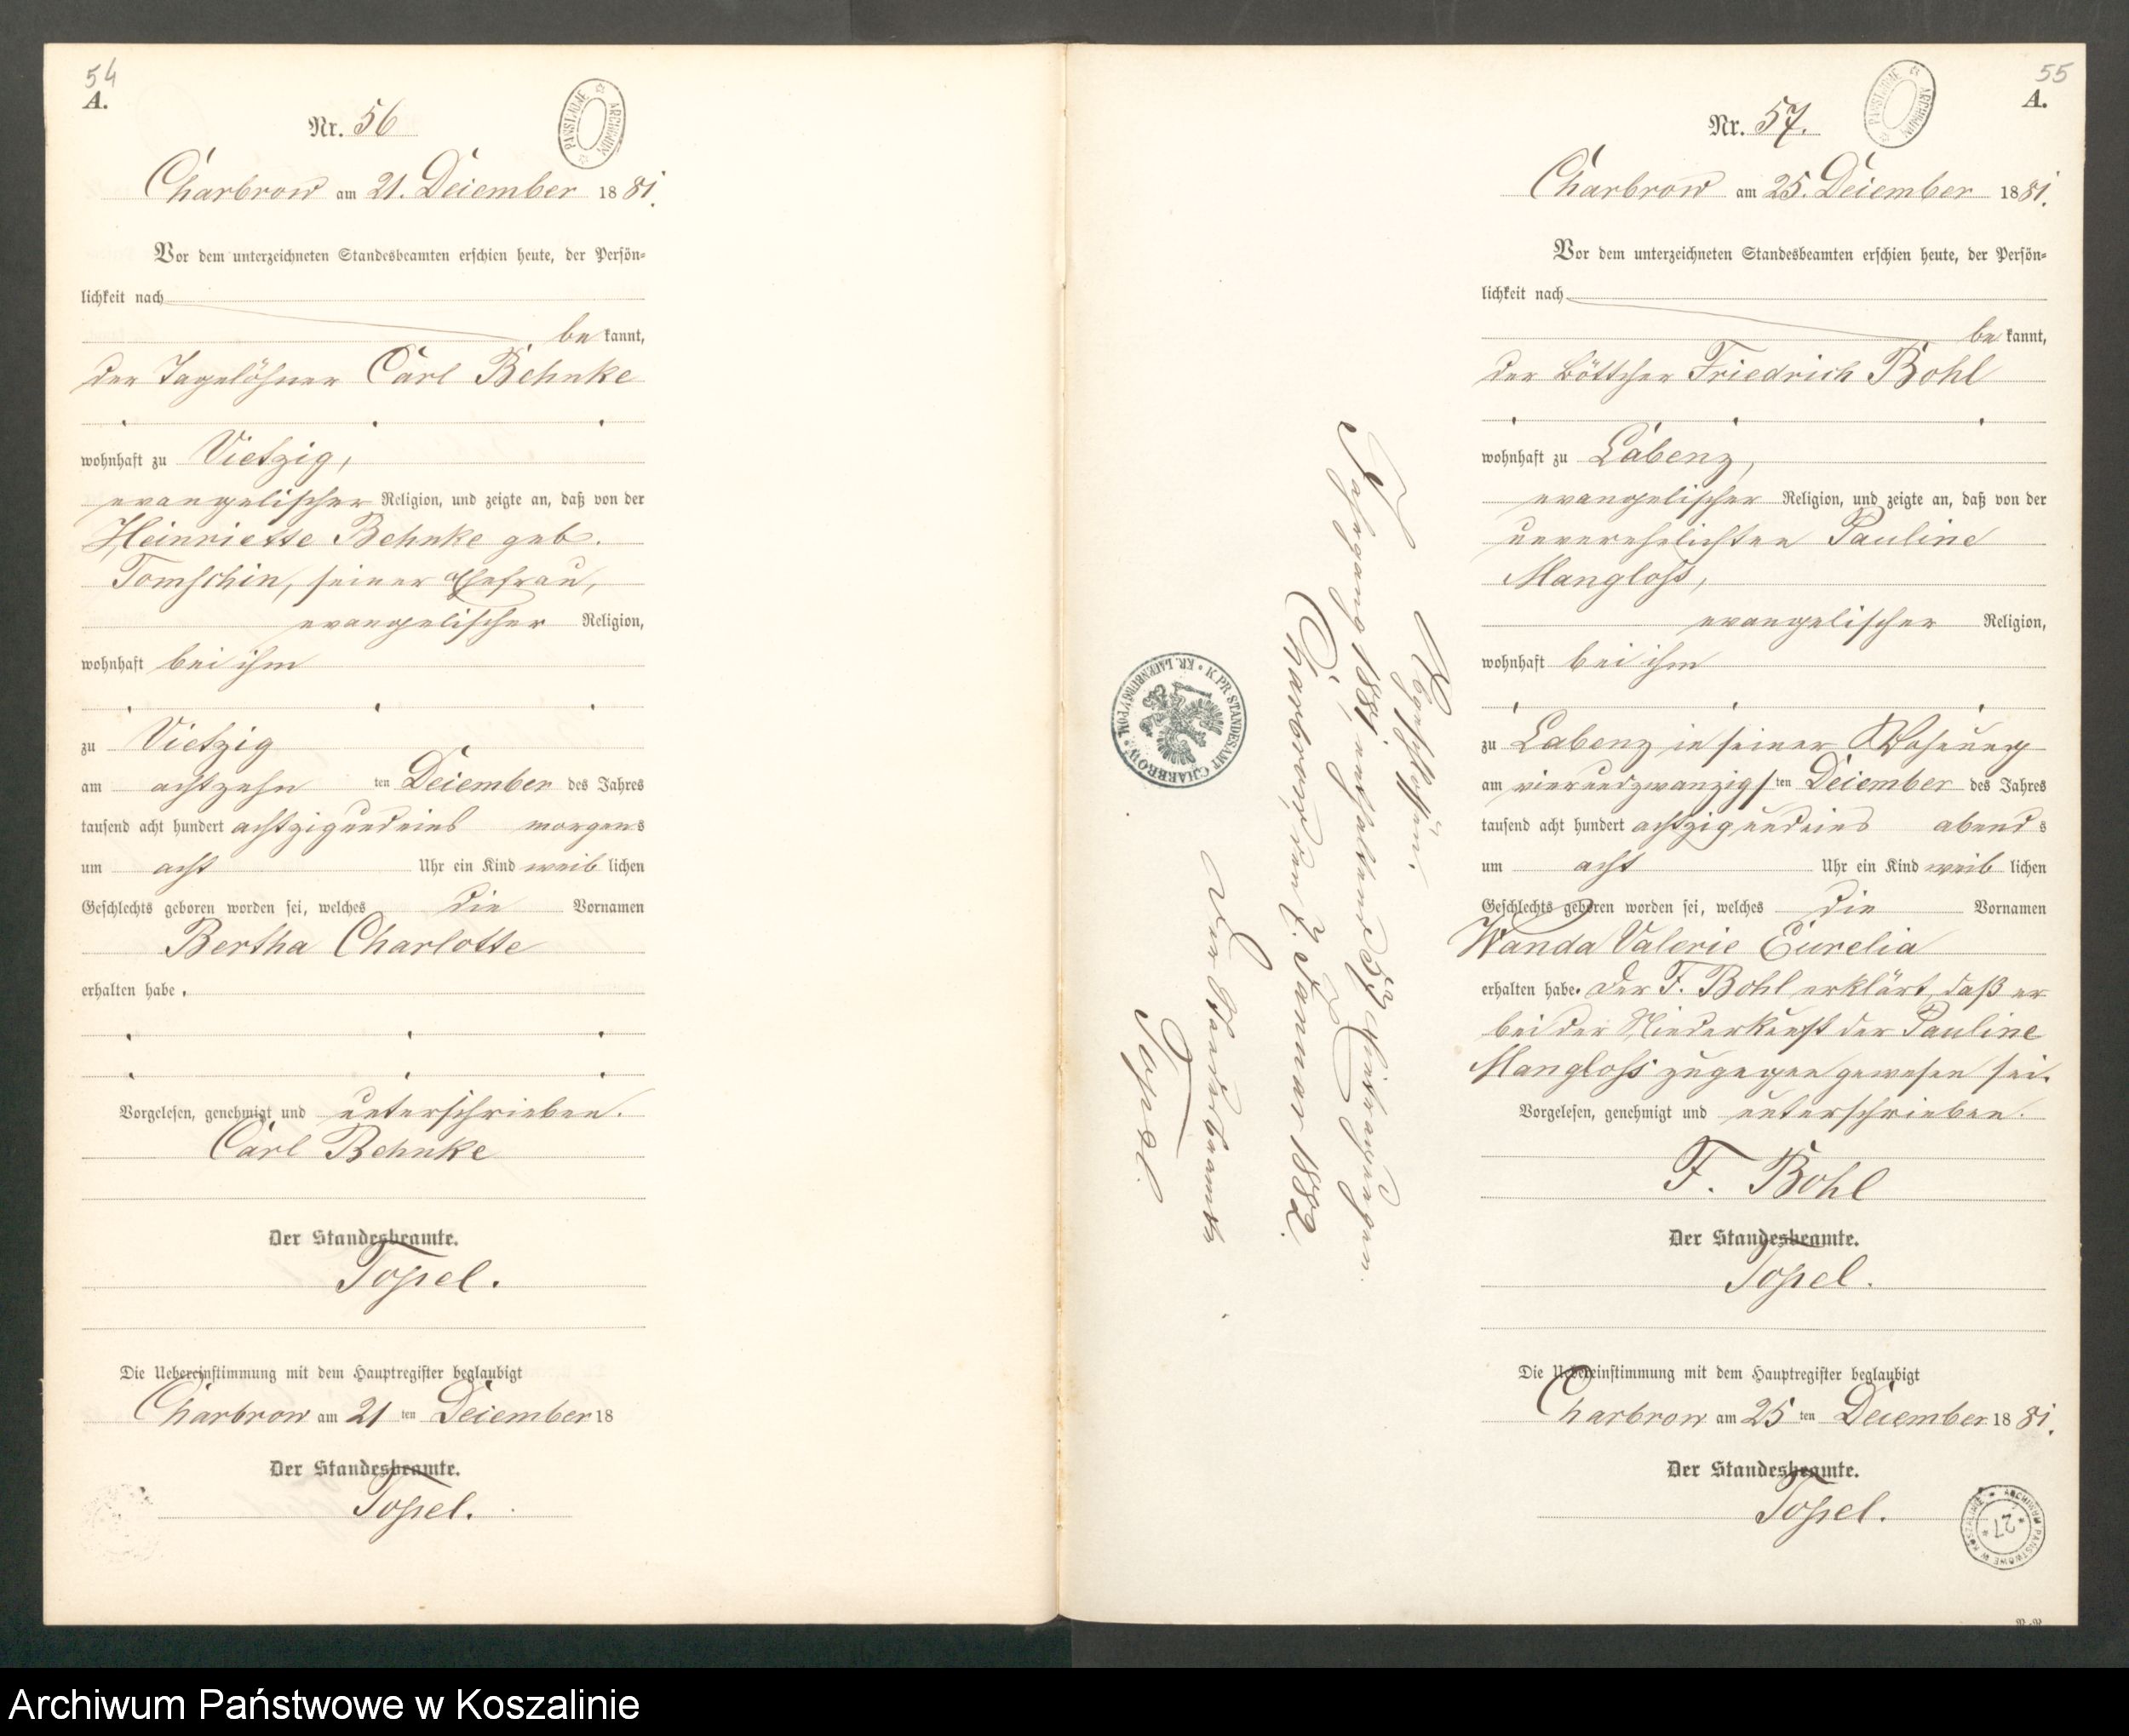 54
A.
Nr. 56
PAŃSTWOWE ARCHIWUM
Charbrow am 21. December 1881.
Vor dem unterzeichneten Standesbeamten erschien heute, der Persön-
lichkeit nach
be kannt,
der Tagelöhner Carl Behnke
wohnhaft zu Vietzig,
evangelischer Religion, und zeigte an, daß von der
Heinriette Behnke geb.
Tomschin, seiner Ehefrau,
evangelischer Religion,
wohnhaft bei ihm
zu Vietzig
am achtzehn ten December des Jahres
tausend acht hundert achtzigundeins morgens
um acht Uhr ein Kind weib lichen
Geschlechts geboren worden sei, welches die Vornamen
Bertha Charlotte
erhalten habe.
Vorgelesen, genehmigt und unterschrieben.
Carl Behnke
Der Standesbeamte.
Topel.
Die Uebereinstimmung mit dem Hauptregister beglaubigt
Charbrow am 21 ten December 18
Der Standesbeamte.
Topel.
55
A.
Nr. 57.
PAŃSTWOWE ARCHIWUM
Charbrow am 25. December 1881.
Vor dem unterzeichneten Standesbeamten erschien heute, der Persön-
lichkeit nach
be kannt,
der Böttcher Friedrich Bohl
wohnhaft zu Labenz,
evangelischer Religion, und zeigte an, daß von der
unverehelichten Pauline
Mangloss,
evangelischer Religion,
wohnhaft bei ihm
zu Labenz in seiner Wohnung
am vierundzwanzig ten December des Jahres
tausend acht hundert achtzigundeins abend s
um acht Uhr ein Kind weib lichen
Geschlechts geboren worden sei, welches die Vornamen
Wanda Valerie Eurelia
erhalten habe. Der F. Bohl erklärt, daß er
bei der Niederkunft der Pauline
Mangloss zugegen gewesen sei.
Vorgelesen, genehmigt und unterschrieben.
F. Bohl
Der Standesbeamte.
Topel.
Die Uebereinstimmung mit dem Hauptregister beglaubigt
Charbrow am 25 ten December 1881.
Der Standesbeamte.
Topel.
ARCHIWUM PAŃSTWOWE W KOSZALINIE
27
Abgeschlossen.
Jahrgang 1881, enthaltend 57 Eintragungen.
Charbrow, den 2. Januar 1882.
Der Standesbeamte
Topel.
K. PR. STANDESAMT CHARBROW KR. LAUENBURG I/POM.
Archiwum Państwowe w Koszalinie